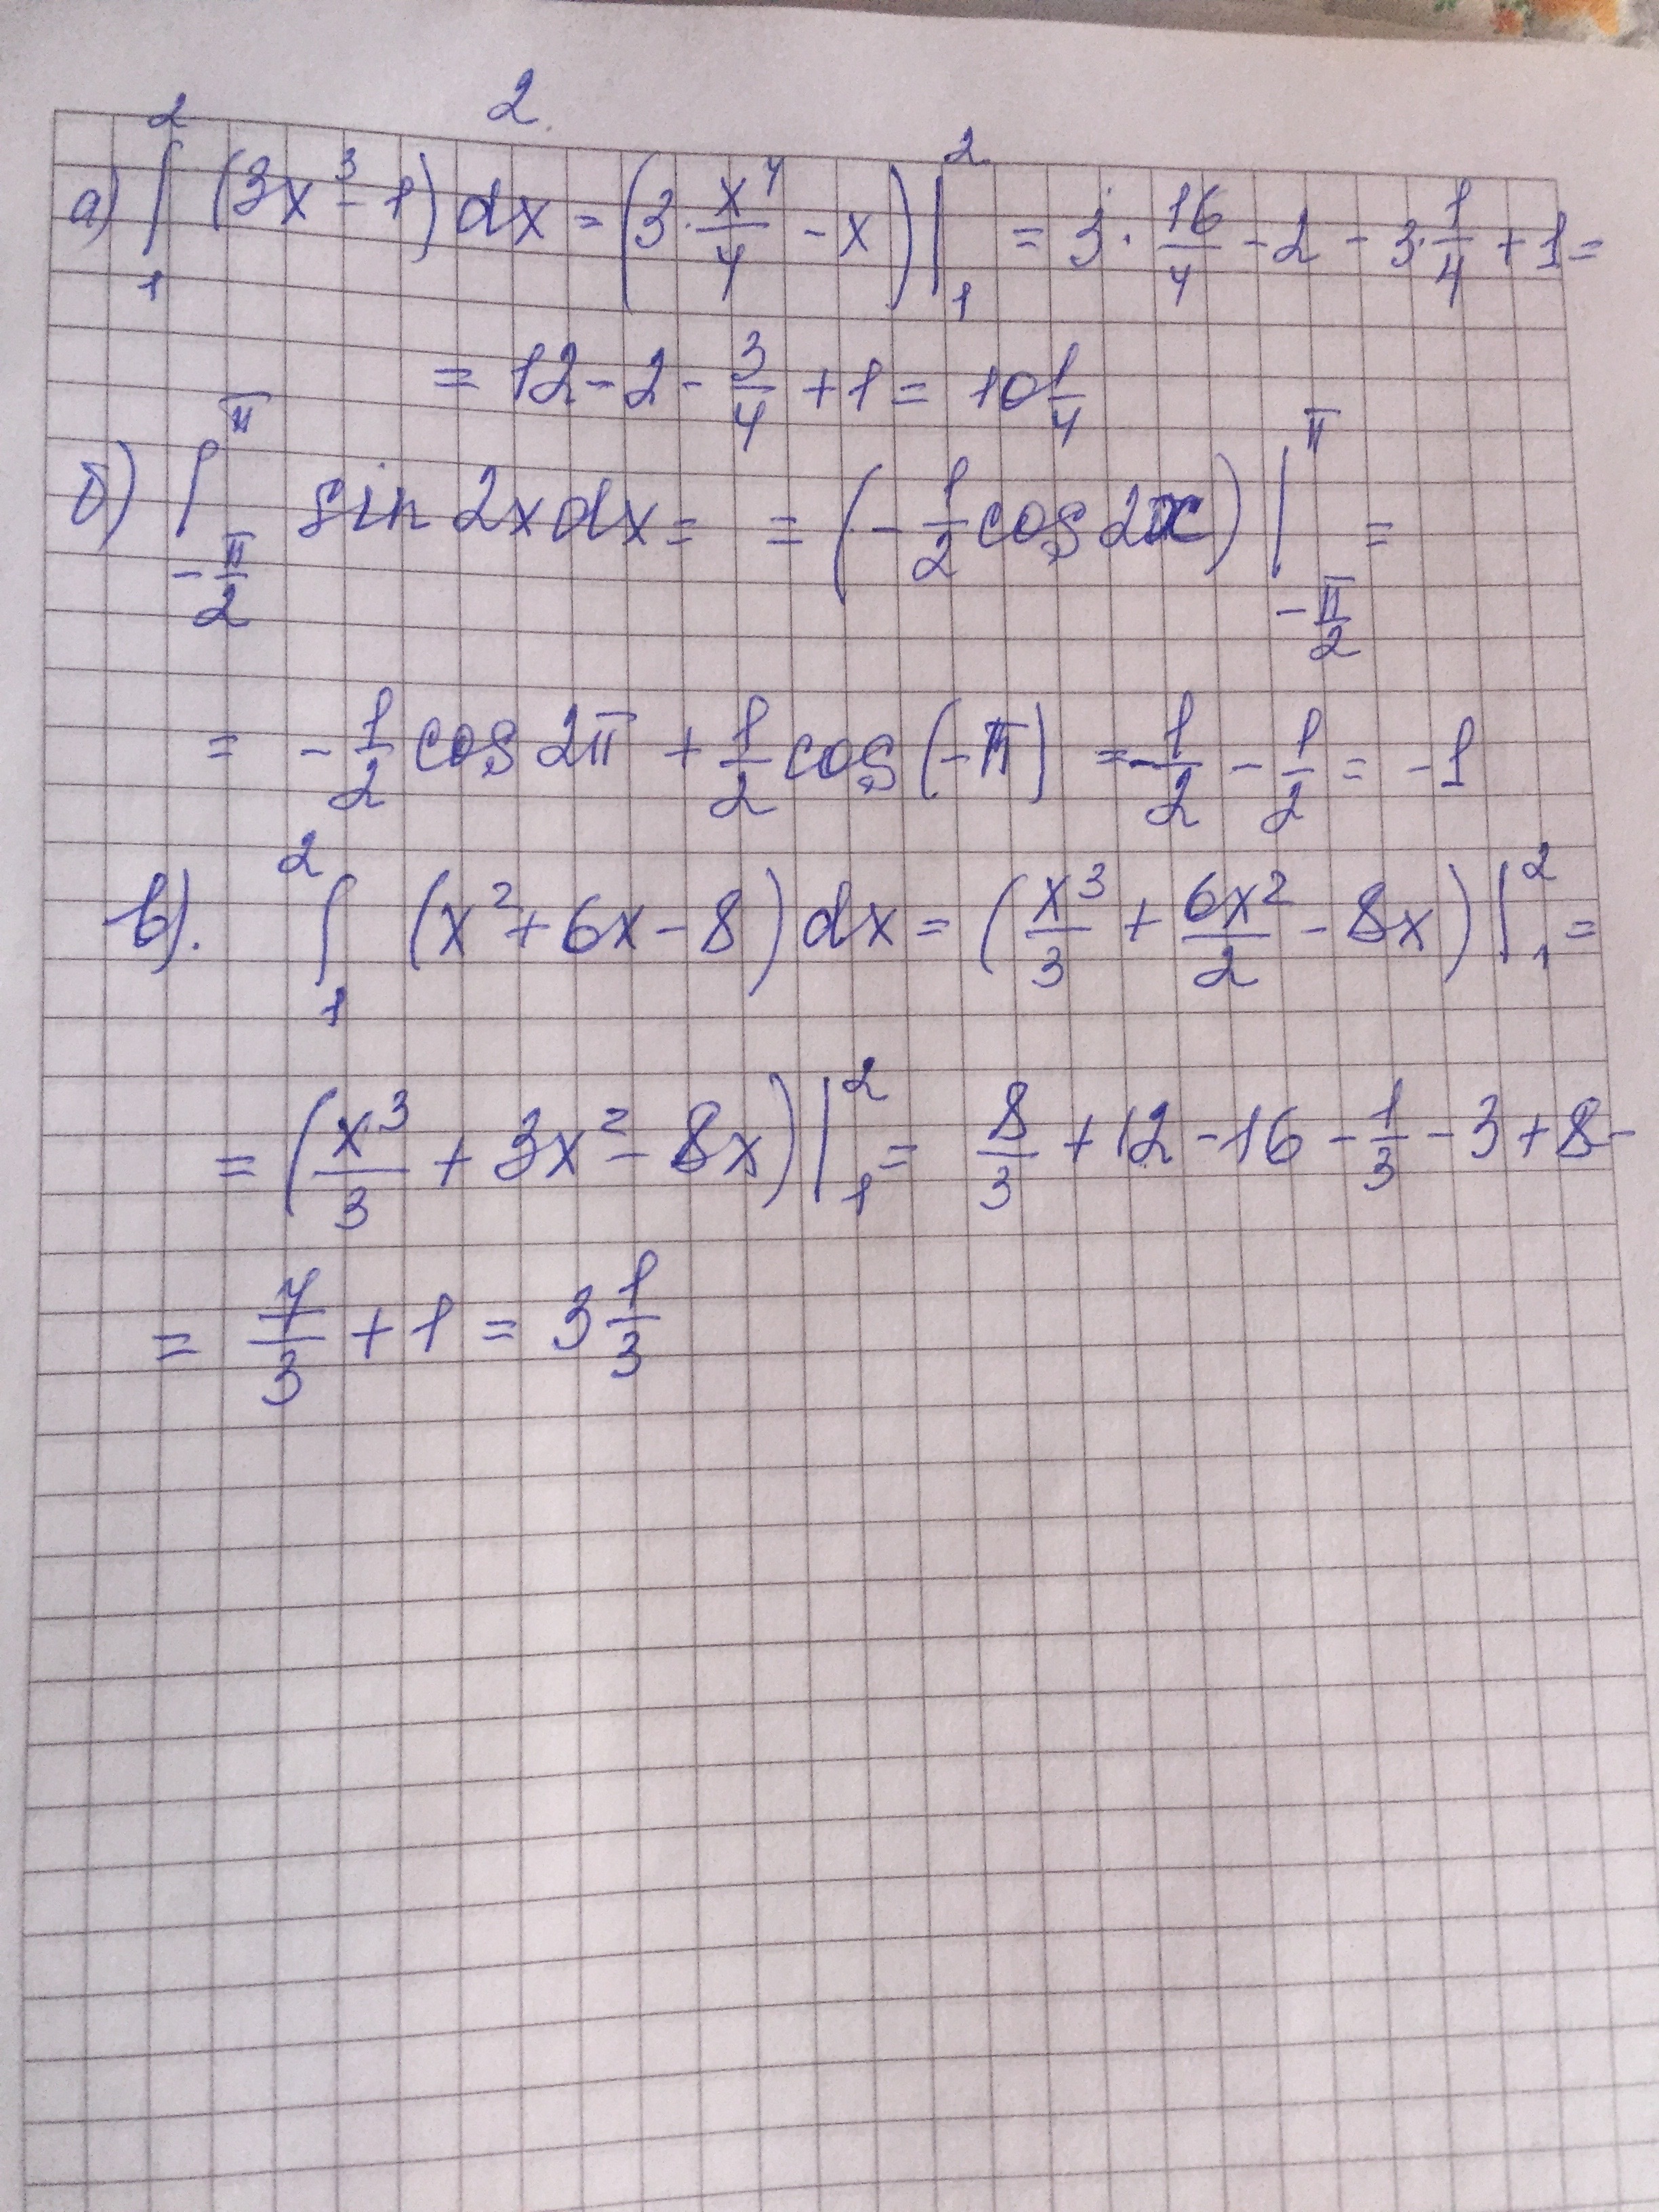 2.
а) ∫₁² (3x³ - 1) dx = (3 · x⁴/4 - x) |₁² = 3 · 16/4 - 2 - 3 · 1/4 + 1 =
= 12 - 2 - 3/4 + 1 = 10 1/4
б) ∫_{-π/2}^{π} sin 2x dx = = (- 1/2 cos 2x) |_{-π/2}^{π} =
= - 1/2 cos 2π + 1/2 cos (-π) = - 1/2 - 1/2 = -1
в). ∫₁² (x² + 6x - 8) dx = (x³/3 + 6x²/2 - 8x) |₁² =
= (x³/3 + 3x² - 8x) |₁² = 8/3 + 12 - 16 - 1/3 - 3 + 8 -
= 7/3 + 1 = 3 1/3